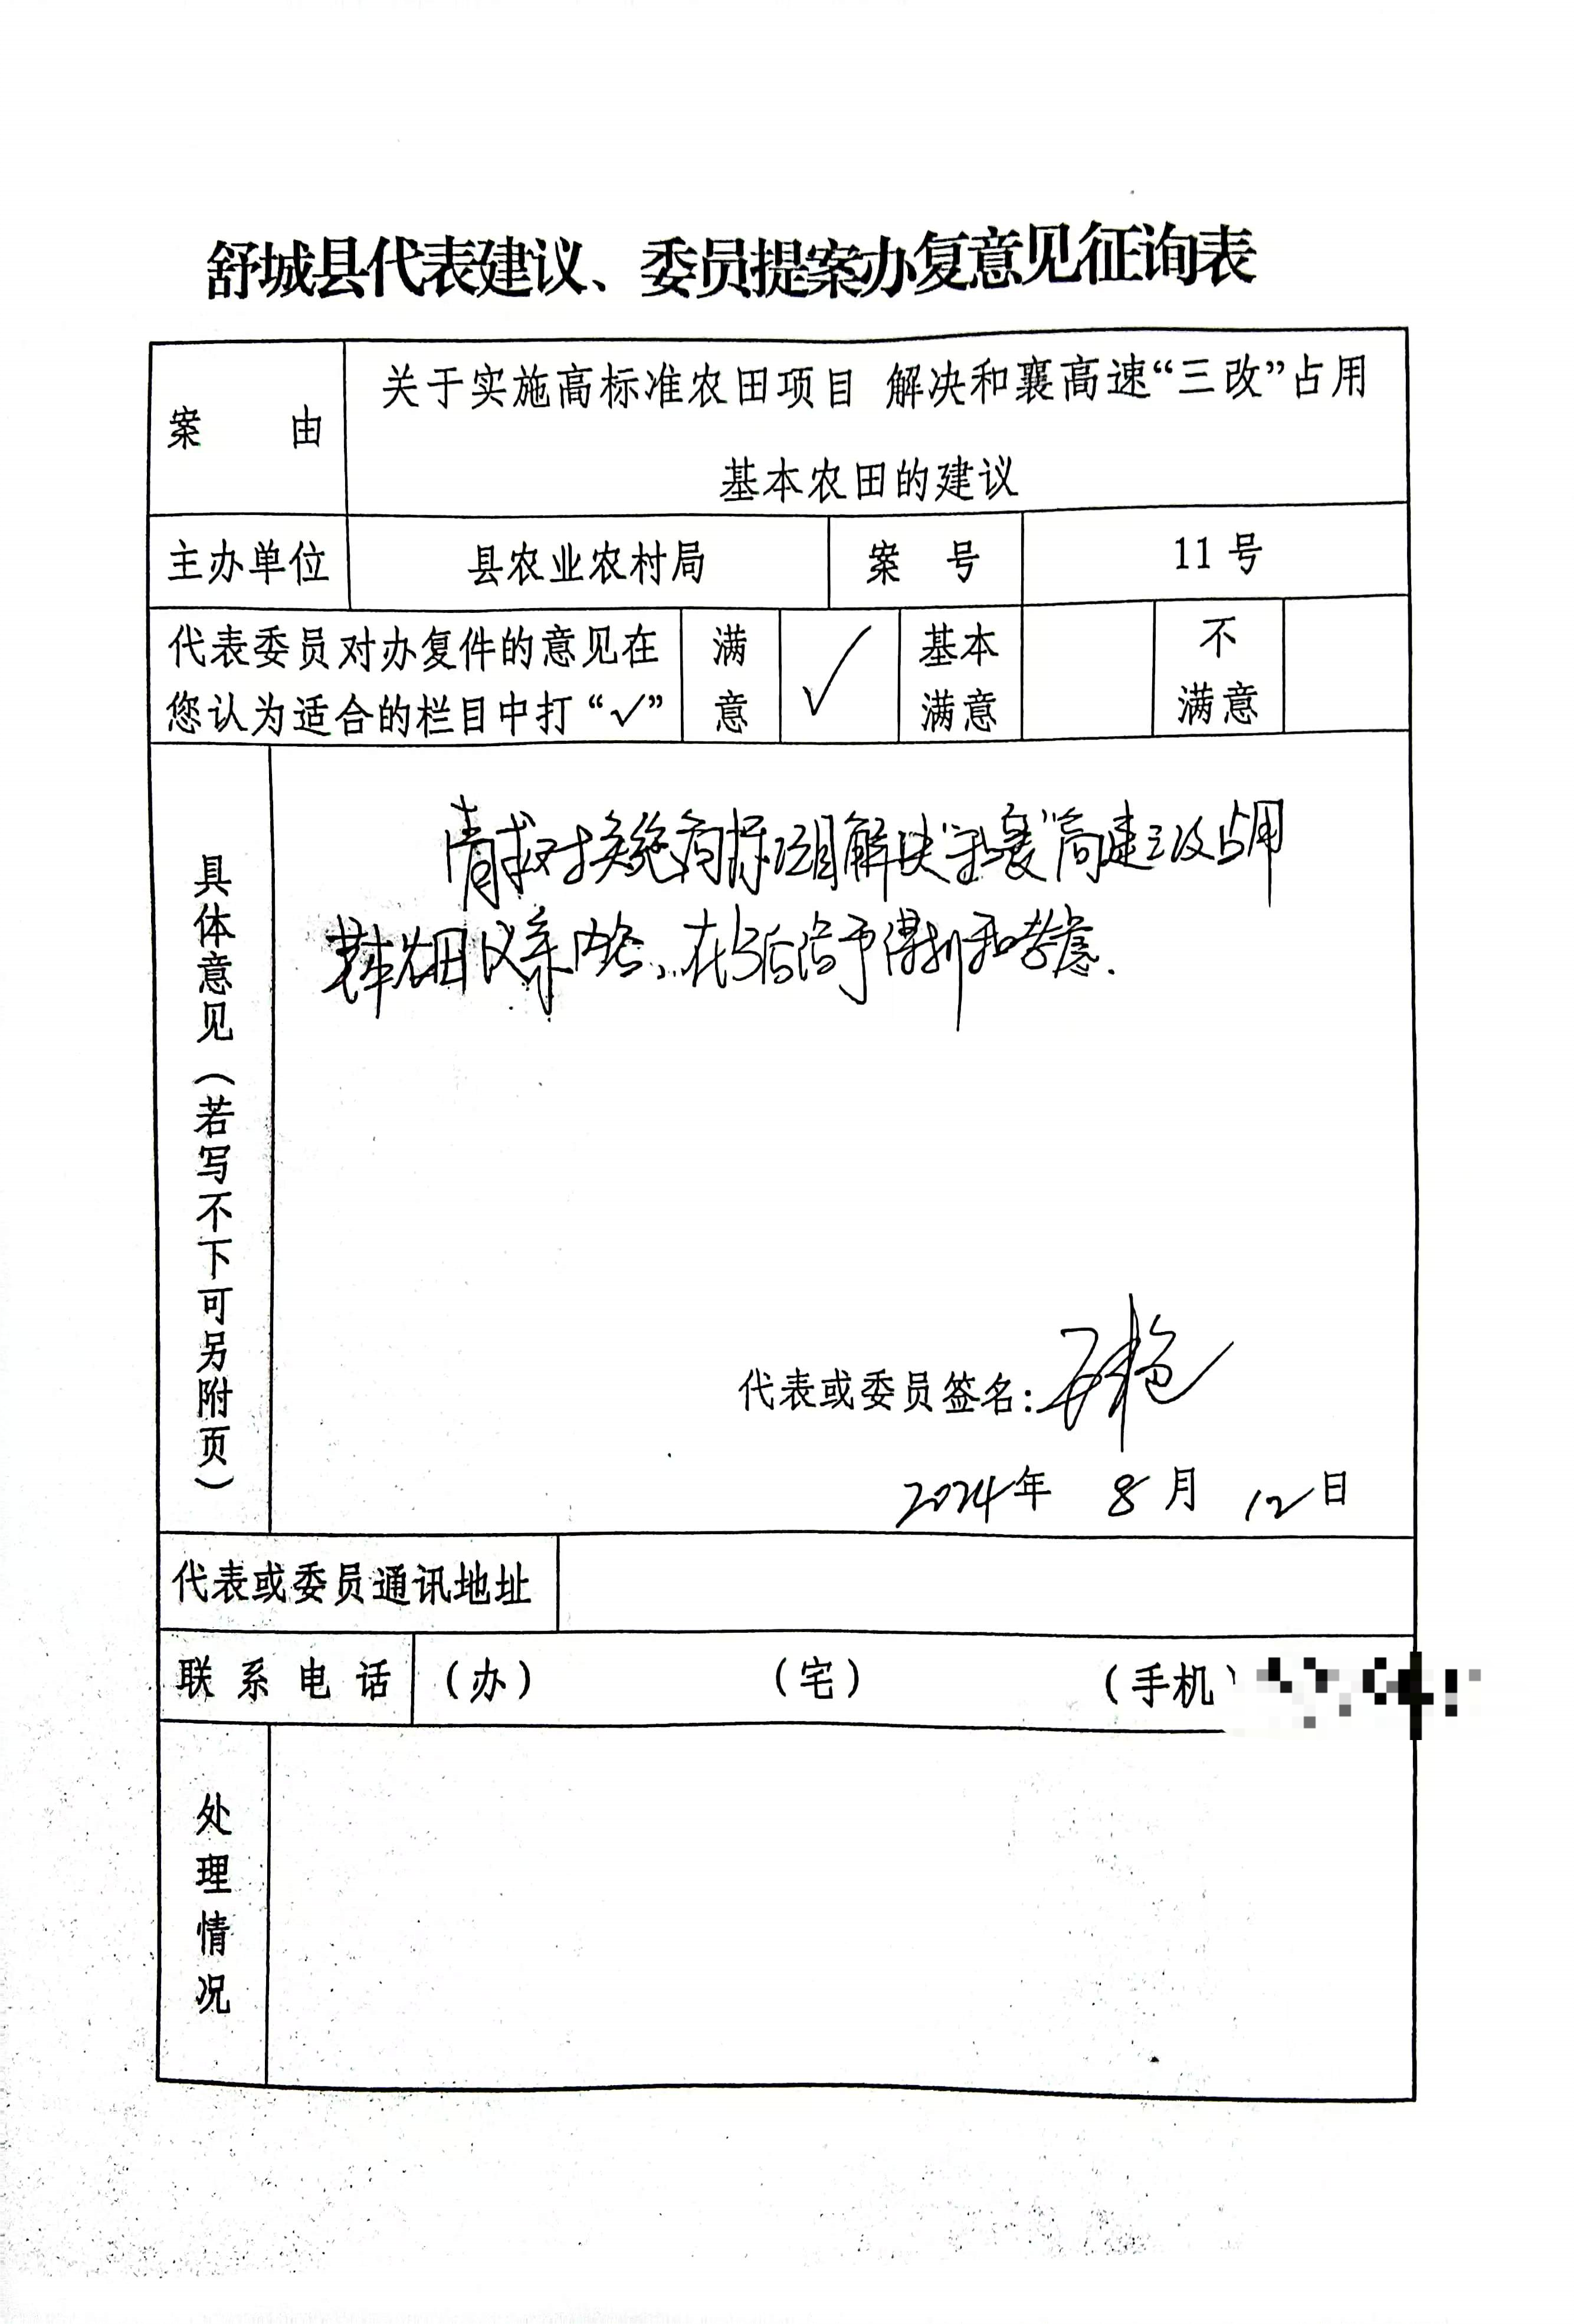 舒城县代表建议、委员提案办复意见征询表
案由
关于实施高标准农田项目 解决和襄高速“三改”占用
基本农田的建议
主办单位
县农业农村局
案号
11号
代表委员对办复件的意见在
您认为适合的栏目中打“√”
满意
√
基本满意
不满意
具体意见（若写不下可另附页）
请求对实施高标项目解决“和襄”高速三改占用
基本农田议案内容、在今后给予谋划和考虑.
代表或委员签名：
2024年 8月 12日
代表或委员通讯地址
联系电话
（办）
（宅）
（手机）
处理情况